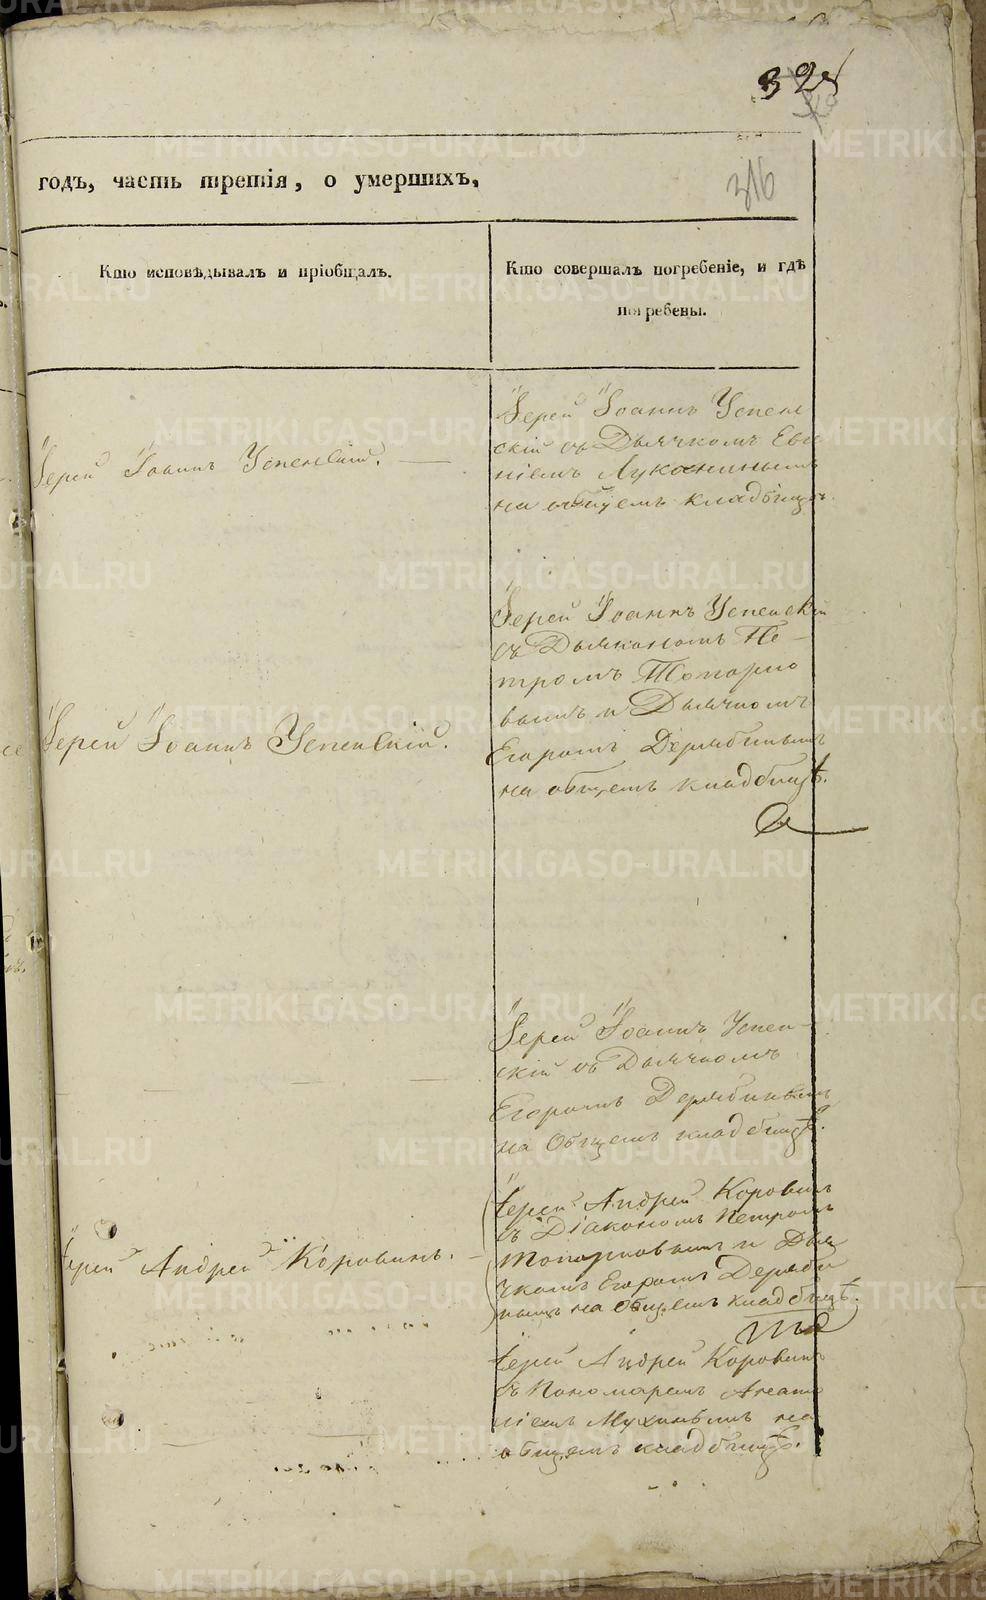 годъ, часть третія, о умершихъ,
316
Кто исповѣдывалъ и пріобщалъ.
Кто совершалъ погребеніе, и гдѣ
погребены.
Іерей Іоаннъ Успенскій.
Іерей Іоаннъ Успен
скій съ Дьячкомъ Евге
ніемъ Лукояниным
на общемъ кладбищѣ.
Іерей Іоаннъ Успенскій.
Іерей Іоаннъ Успенскій
съ Дьякономъ Пе-
тромъ Топорко
вымъ и Дьячкомъ
Егоромъ Дерябинымъ
на общемъ кладбищѣ.
Іерей Іоаннъ Успен-
скій съ Дьячкомъ
Егоромъ Дерябинымъ
на Общемъ кладбищѣ.
Іерей Андрей Коровинъ.
Іерей Андрей Коровинъ
съ Діакономъ Петромъ
Топорковымъ и Дья
чкомъ Егоромъ Деряби
нымъ на Общемъ кладбищѣ.
Іерей Андрей Коровинъ
съ Пономаремъ
Мухинымъ на
общемъ кладбищѣ.
METRIKI.GASO-URAL.RU